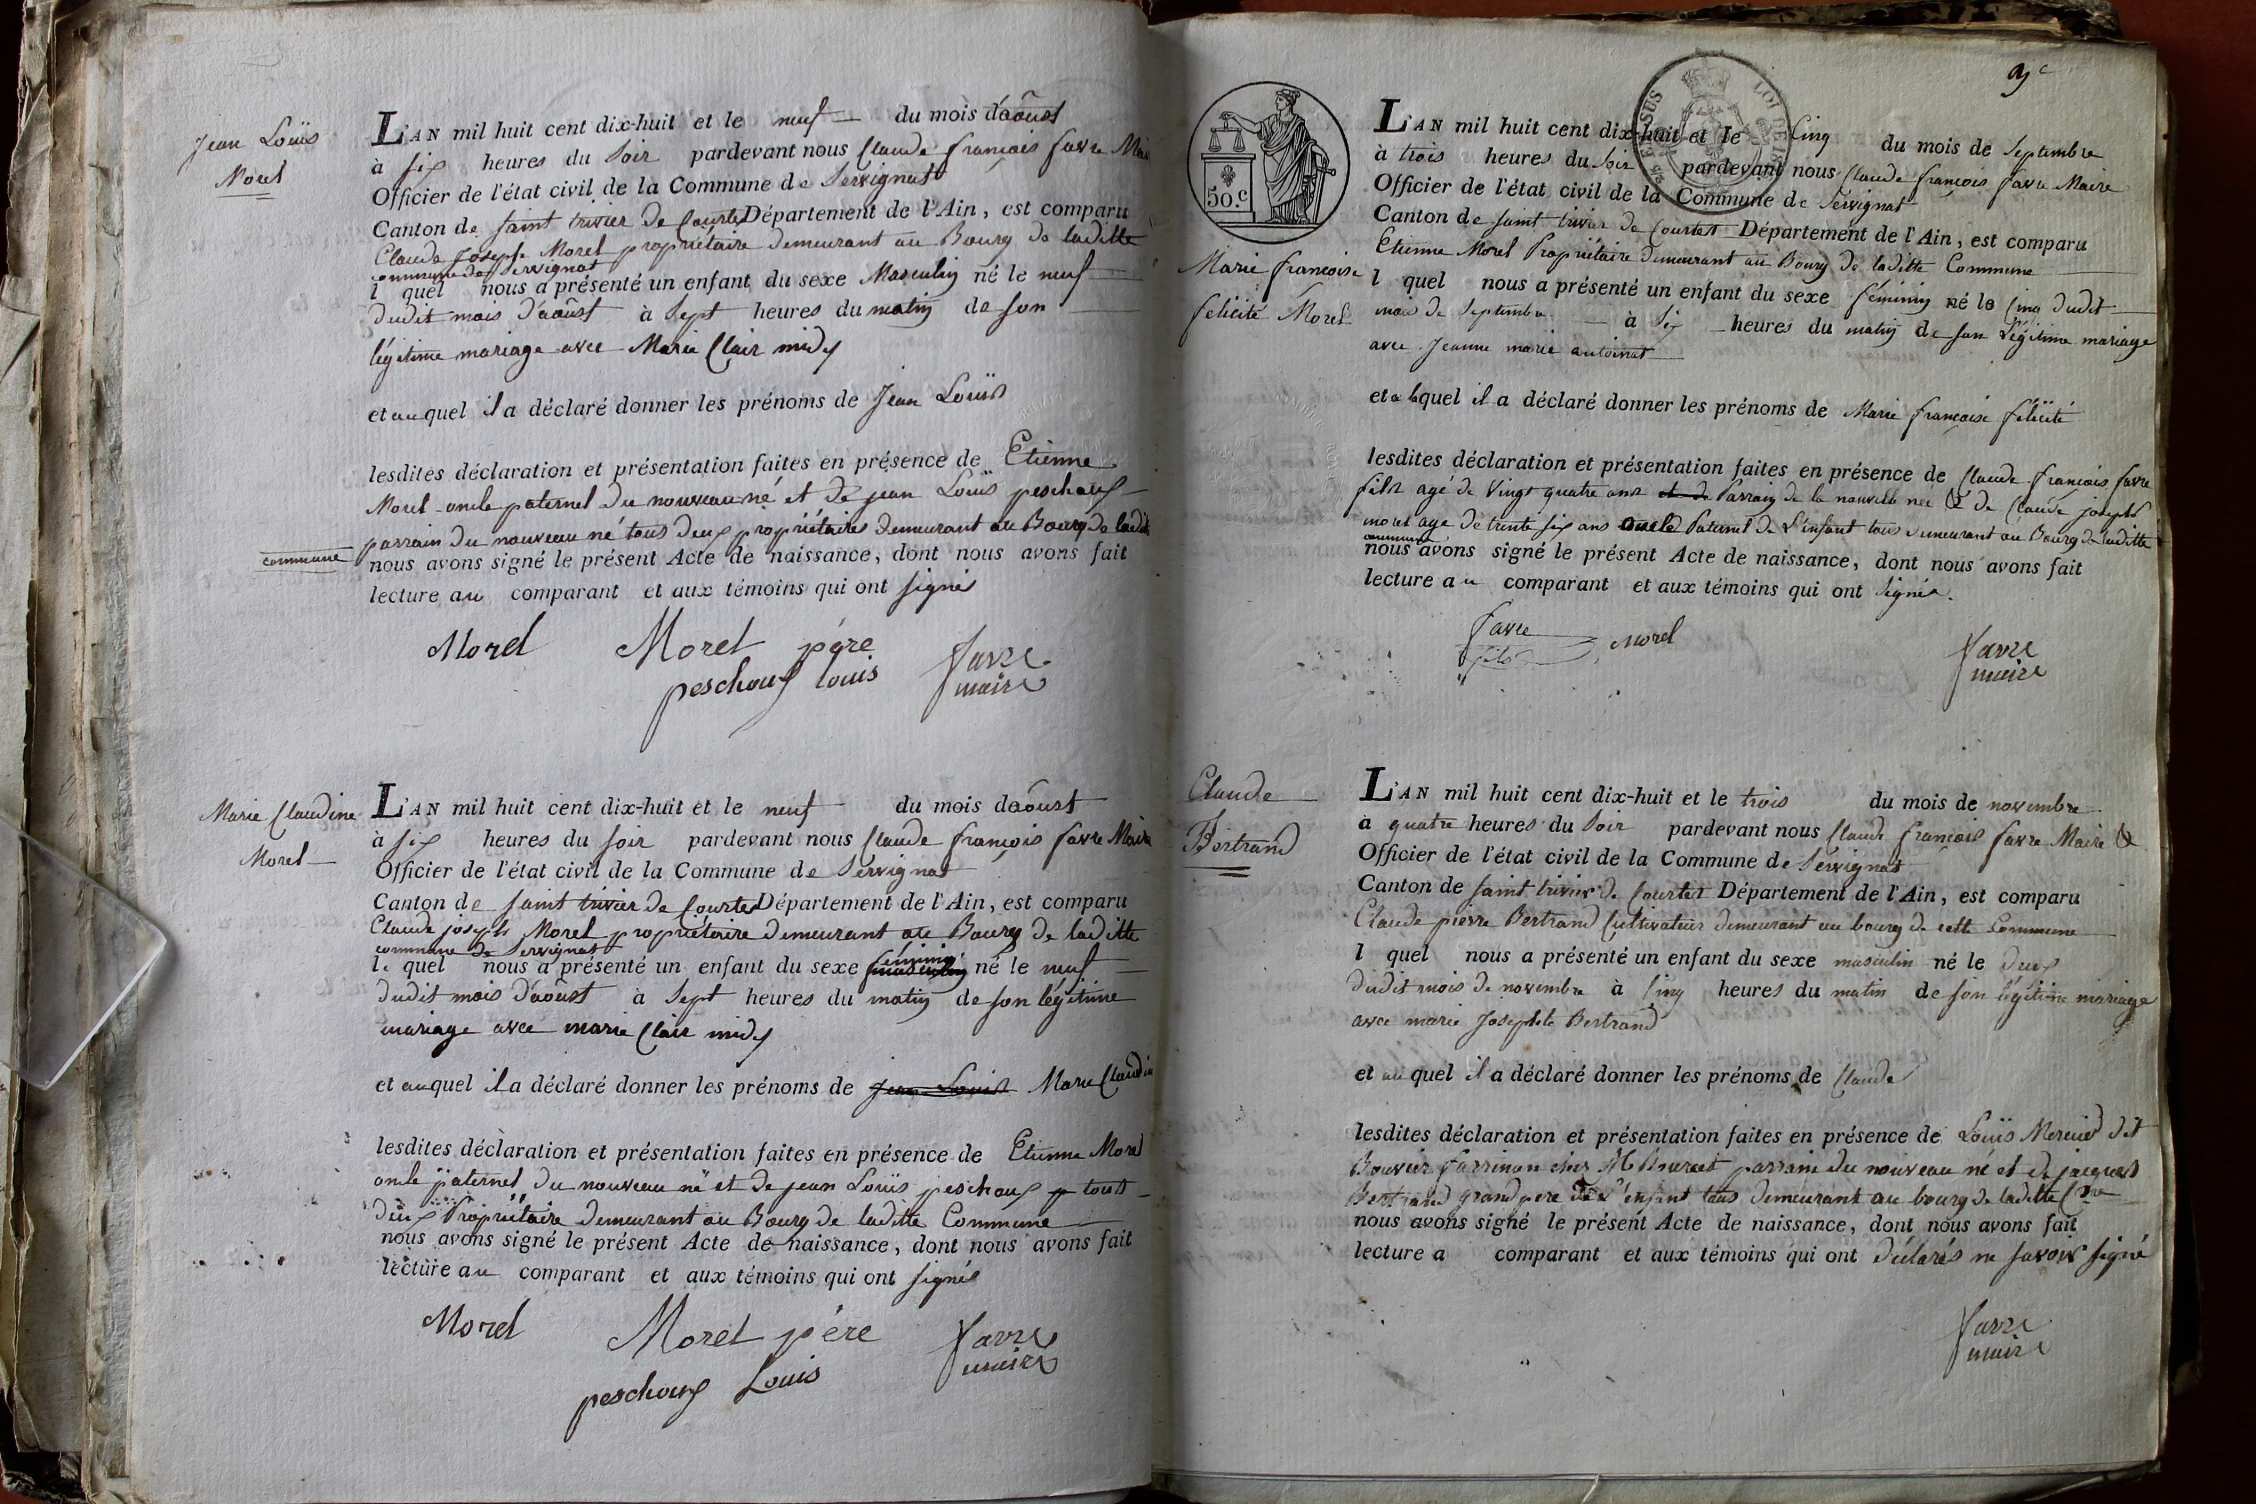 Jean Louis
Morel
L'AN mil huit cent dix-huit et le neuf du mois d'août
à six heures du soir pardevant nous Claude françois favre Mai
Officier de l'état civil de la Commune de Servignat
Canton de saint trivier de Courtes Département de l'Ain, est comparu
Claude Joseph Morel propriétaire demeurant au Bourg de laditte
commune de Servignat
l quel nous a présenté un enfant du sexe Masculin né le neuf
dudit mois d'août à sept heures du matin de son
légitime mariage avec Marie Clair midy
et auquel il a déclaré donner les prénoms de Jean Louis
lesdites déclaration et présentation faites en présence de Etienne
Morel oncle paternel du nouveau né et de jean Louis peschoux
parrain du nouveau né tous deux propriétaires demeurant au Bourg de ladit
commune
nous avons signé le présent Acte de naissance, dont nous avons fait
lecture au comparant et aux témoins qui ont signés
Morel Morel père favre
peschoux louis maire
Marie Claudine
Morel
L'AN mil huit cent dix-huit et le neuf du mois daôust
à six heures du soir pardevant nous Claude françois favre Maire
Officier de l'état civil de la Commune de Servignat
Canton de saint trivier de Courtes Département de l'Ain, est comparu
Claude joseph Morel propriétaire demeurant au Bourg de laditte
commune de Servignat
féminin
le quel nous a présenté un enfant du sexe masculin né le neuf
dudit mois d'août à sept heures du matin de son légitime
mariage avec marie Clair midy
et auquel il a déclaré donner les prénoms de jean Louis Marie Claudin
lesdites déclaration et présentation faites en présence de Etienne Morel
oncle paternel du nouveau né et de jean Louis peschoux tous
deux Propriétaire demeurant au Bourg de laditte Commune
nous avons signé le présent Acte de naissance, dont nous avons fait
lecture au comparant et aux témoins qui ont signés
Morel Morel père favre
peschoux Louis maire
50.c
LOUIS
Marie françoise
félicité Morel
L'AN mil huit cent dix-huit et le Cinq du mois de Septembre
à trois heures du soir pardevant nous Claude françois favre Maire
Officier de l'état civil de la Commune de Servignat
Canton de saint trivier de Courtes Département de l'Ain, est comparu
Etienne Morel Propriétaire demeurant au Bourg de laditte Commune
l quel nous a présenté un enfant du sexe féminin né le Cinq dudit
mois de Septembre à Six heures du matin de son Légitime mariage
avec Jeanne marie
et a laquel il a déclaré donner les prénoms de Marie françoise félicité
lesdites déclaration et présentation faites en présence de Claude françois favre
fils agé de Vingt quatre ans et de Parrain de la nouvelle née & de Claude joseph
morel agé de trente six ans oncle Paternel de L'enfant tous demeurant au Bourg de laditte
commune
nous avons signé le présent Acte de naissance, dont nous avons fait
lecture au comparant et aux témoins qui ont signés.
favre Morel favre
fils maire
Claude
Bertrand
L'AN mil huit cent dix-huit et le trois du mois de novembre
à quatre heures du soir pardevant nous Claude françois favre Maire &
Officier de l'état civil de la Commune de Servignat
Canton de saint trivier de Courtes Département de l'Ain, est comparu
Claude pierre Bertrand Cultivateur demeurant au bourg de cette Commune
l quel nous a présenté un enfant du sexe masculin né le deux
dudit mois de novembre à Cinq heures du matin de son légitime mariage
avec marie Josephte Bertrand
et au quel il a déclaré donner les prénoms de Claude
lesdites déclaration et présentation faites en présence de Louis dit
Bouvier chez Mr parrain du nouveau né et de jacques
Bertrand grand pere de l'enfant tous demeurant au bourg de laditte Cne
nous avons signé le présent Acte de naissance, dont nous avons fait
lecture a comparant et aux témoins qui ont déclarés ne savoir signé
favre
maire